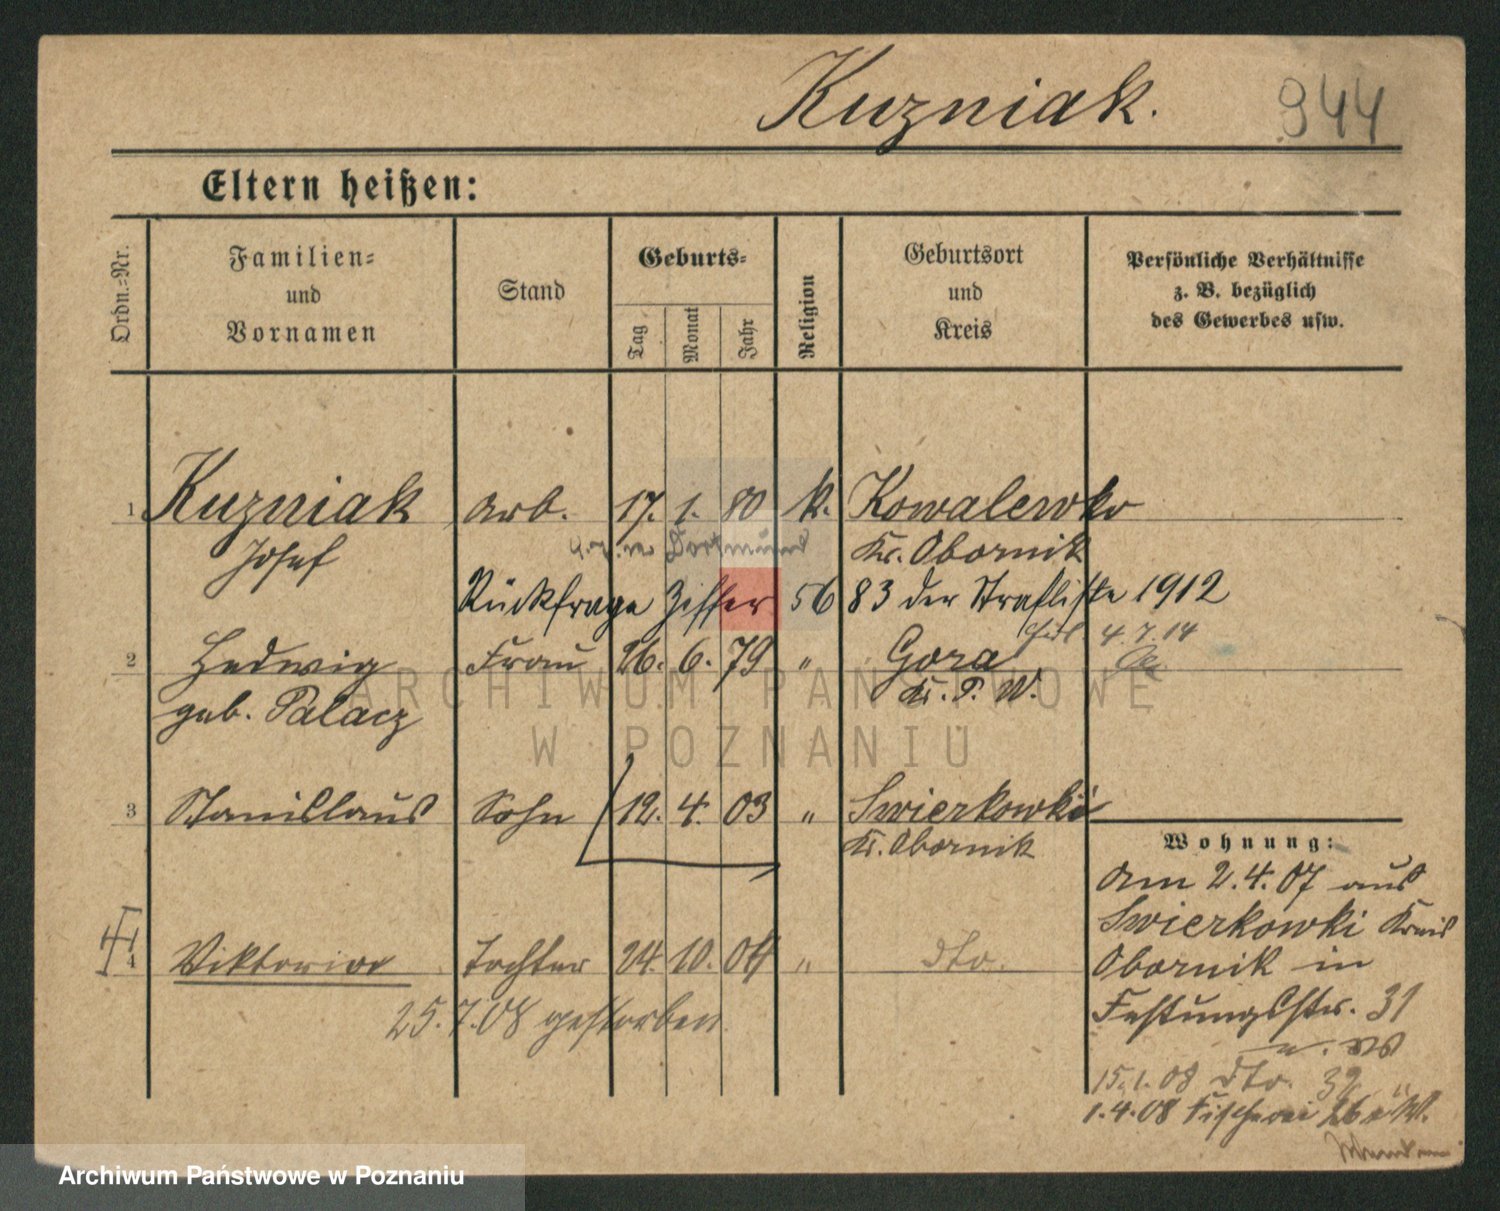 Kuzniak.
944
Eltern heißen:
Ordn.-Nr.
Familien-
und
Vornamen
Stand
Geburts-
Tag
Monat
Jahr
Religion
Geburtsort
und
Kreis
Persönliche Verhältnisse
z. B. bezüglich
des Gewerbes usw.
1 Kuzniak Arb. 17. 1. 80 k. Kowalewko
Josef Kr. Obornik
Dortmund
Rückfrage Ziffer 56 83 der Strafliste 1912
4.7.14
2 Hedwig Frau 26. 6. 79 " Gora
geb. Palacz Kr. P. W.
3 Stanislaus Sohn 12. 4. 03 " Swierkowki
Kr. Obornik
4 Viktoria Tochter 24. 10. 04 " dto.
25.7.08 gestorben
Wohnung:
Am 2.4.07 aus
Swierkowki Kreis
Obornik in
Festungsstr. 31
15.1.08 dto. 32
1.4.08 Fischerei 26
ARCHIWUM PAŃSTWOWE
W POZNANIU
Archiwum Państwowe w Poznaniu